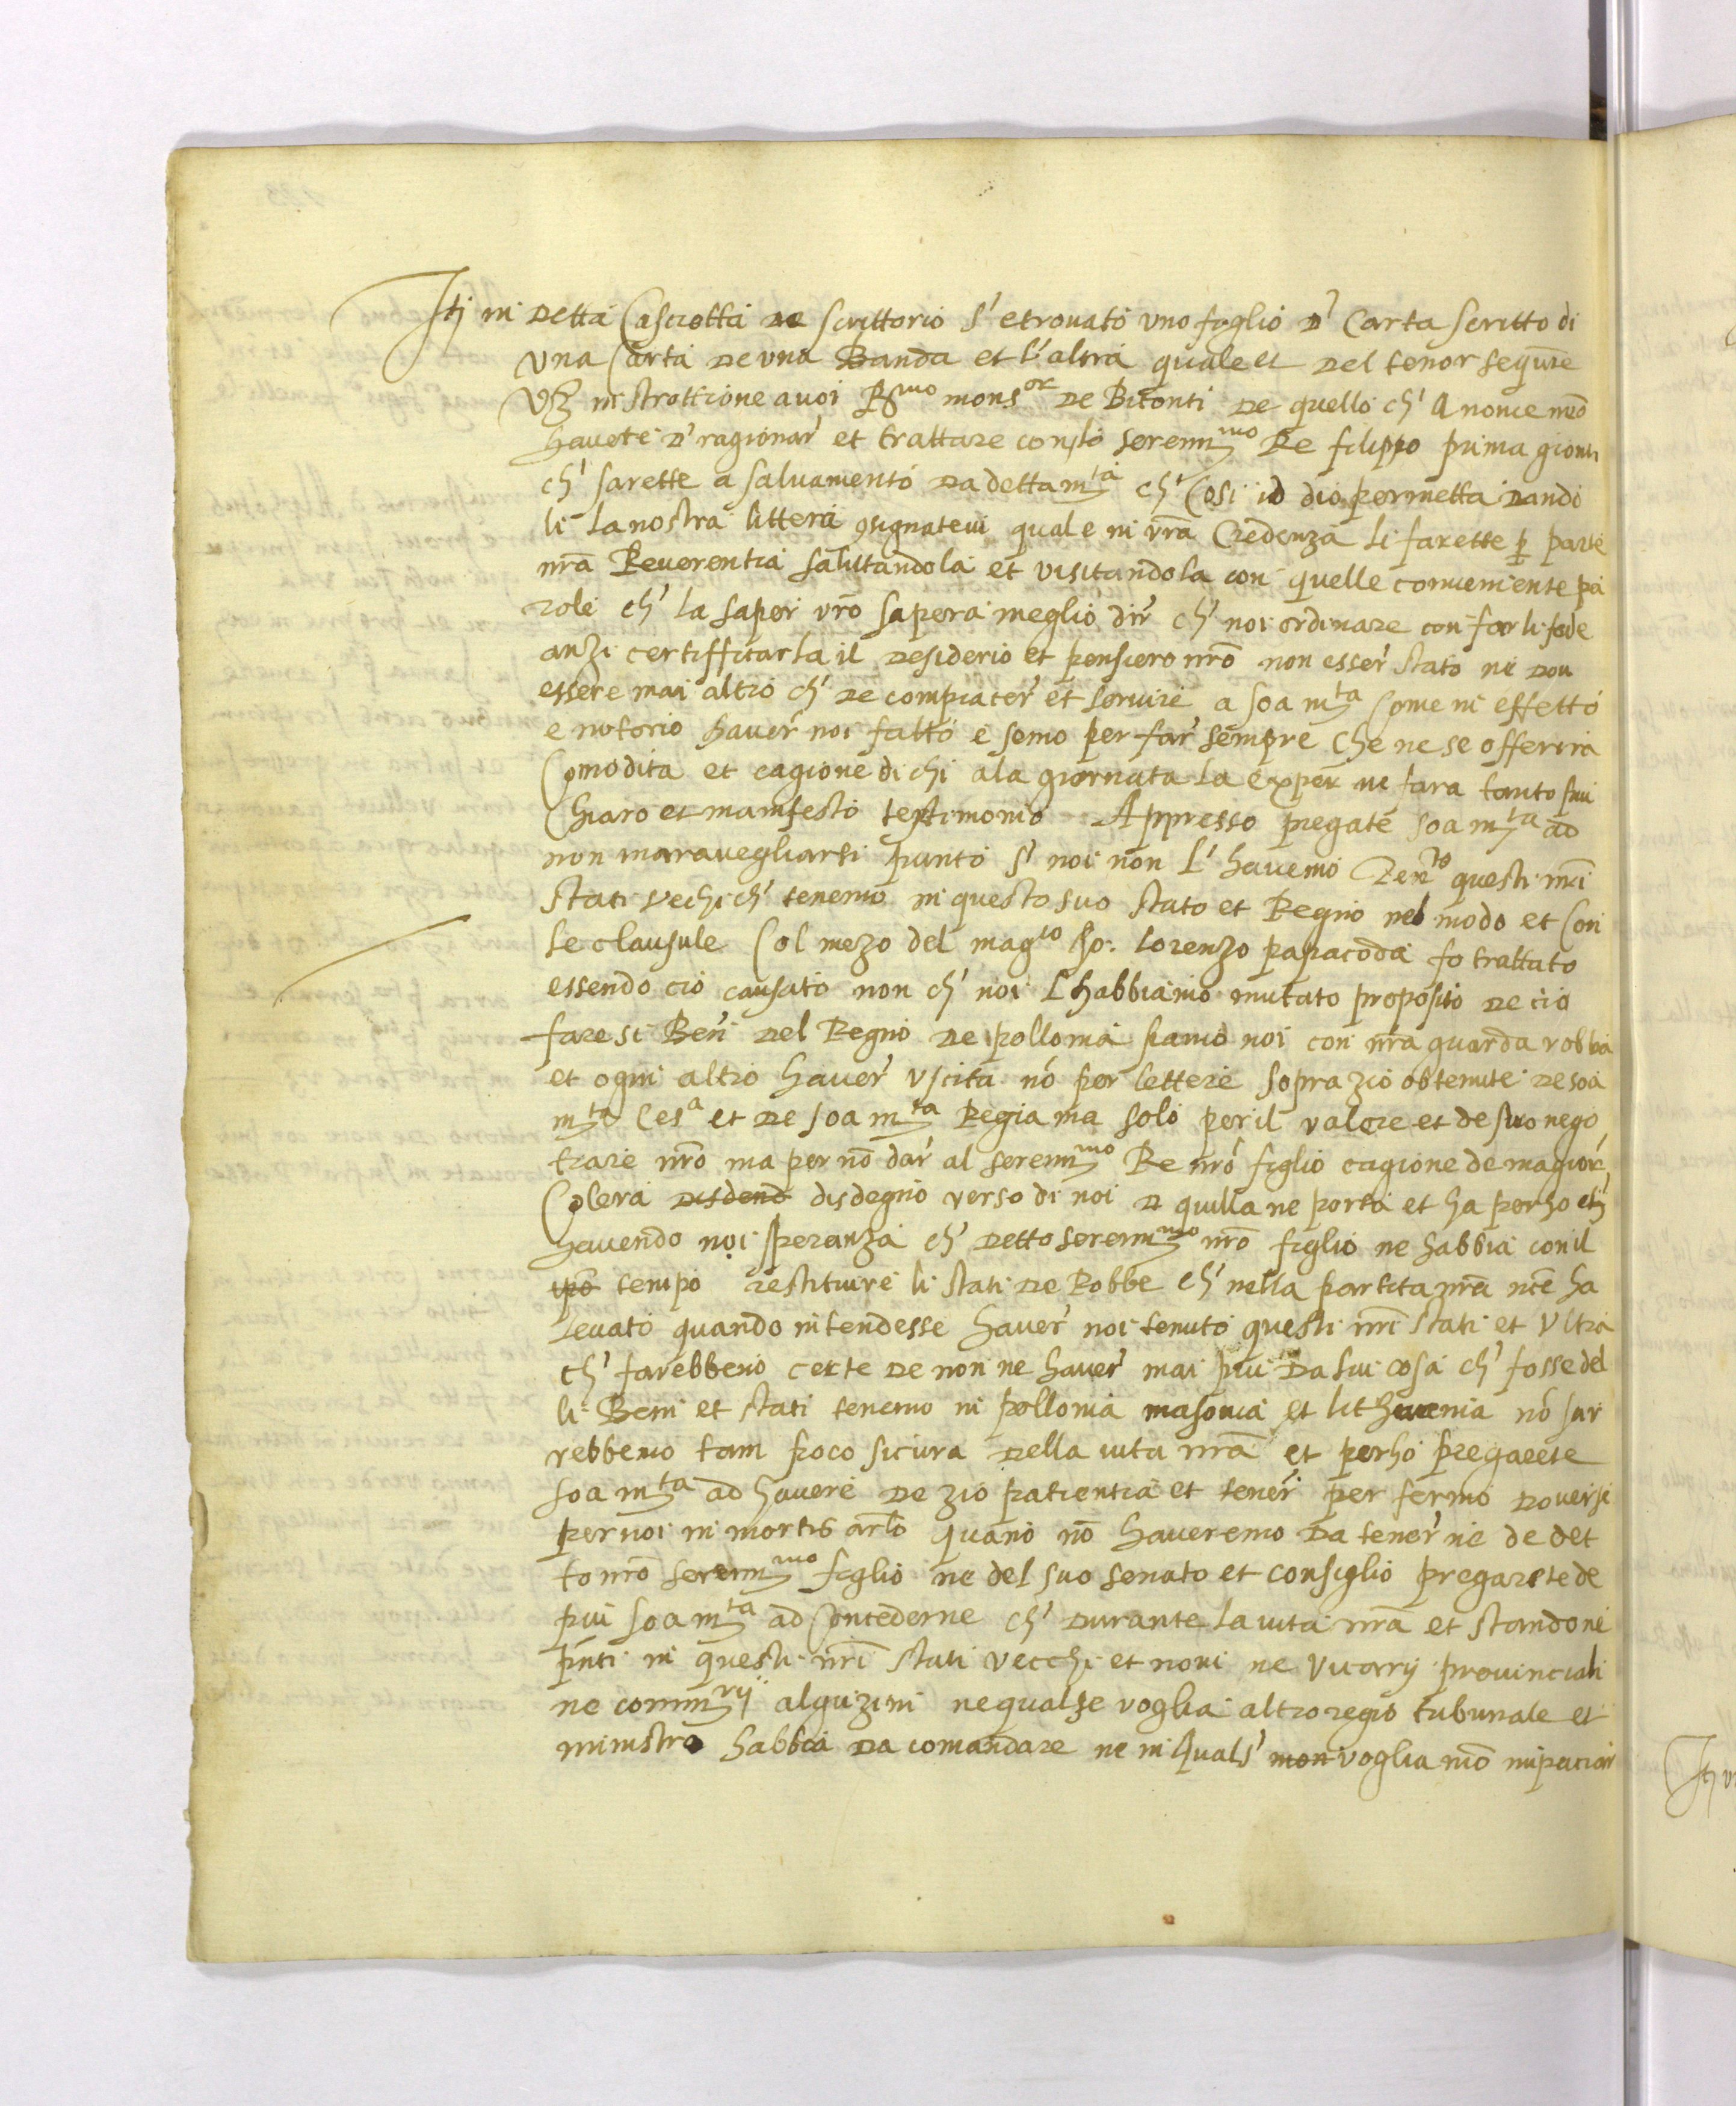 Itȝ in detta Casciotta de scrittorio s' e trovato uno foglio d' Carta scritto di
una Carta de una Banda et l' altra quale et del tenor sequẽte
Vȝ instruttione a voi R.mo mons.or de Bitonti de quello ch' A nome nr̃o
havete d' ragionar' et trattare con lo serenm.mo Re filippo prima gionti
ch' sarette a salvamento da detta m.tà ch' Cosi id dio permetta dando
li la nostra littera 9signatevi qual e in vr̃a Credenza li farette ꝑ parte
nr̃a Reverentia salutandola et visitandola con quelle conveniente pa
role ch' la saper vr̃o sapera meglio dir' ch' noi ordinare con farli fede
anzi certifficarla il desiderio et pensiero nr̃o non esser' stato ne dou
essere mai altro ch' de compiacer' et servire a soa m.ta Come in effetto
e notorio haver' noi fatto e semo per far' sempre che ne se offerira
Comodita et cagione di chi ala giornata la exper ne fara tanto piu
Chiaro et manifesto testimonio Appresso pregate soa m.ta ad
non maravegliarsi punto s' noi non l' havemo questi nr̃i
stati vechi ch' tenemo in questo suo stato et Regno nel modo et Con
le clausule Col mezo del mag.co Lorenzo papacoda fo trattato
essendo cio causato non ch' noi l habbiamo mutato proposito de cio
fare si Ben' del Regno de pollonia siamo noi con nr̃a guarda robba
et ogni altro haver' uscita nõ per lettere sopra zio obtenute de soa
m.ta Ces.a et de soa m.ta Regia ma solo per il valore et de suo nego
tiare nr̃o ma per nõ dar' al serenm.mo Re nr̃o figlio cagione de magior'
Colera disdeno disdegno verso di noi d quilla ne porta et ha perho etȝ
havendo noi speranza ch' detto serenm.mo nr̃o figlio ne habbia con il
tpõ tempo restituire li stati de Robbe ch' nella partita nr̃a nce ha
levato quando intendesse haver' noi tenuto questi nr̃i stati et Ultra
ch' sarebbeno certe de non ne haver' mai piu da lui cosa ch' fosse del
li Beni et stati tenemo in pollonia masovia et lithuania nõ sar
rebbemo tam poco sicura della vita nr̃a et perho pregarete
soa m.ta ad havere de zio patientia et tener' per fermo doverse
per noi in mortis arlo quãno nõ haveremo da tener' ne de det
to nr̃o serenm.mo figlio ne del suo senato et consiglio pregarete de
piu soa m.ta ad Concederne ch' durante la vita nr̃a et standone
pñti in questi nr̃i stati vecchi et novi ne vicarij provinciali
ne comm.rij alguzini ne qualse voglia altro regio tribunale et
ministro habbia da comandare ne in quals' mon voglia mõ impaciar